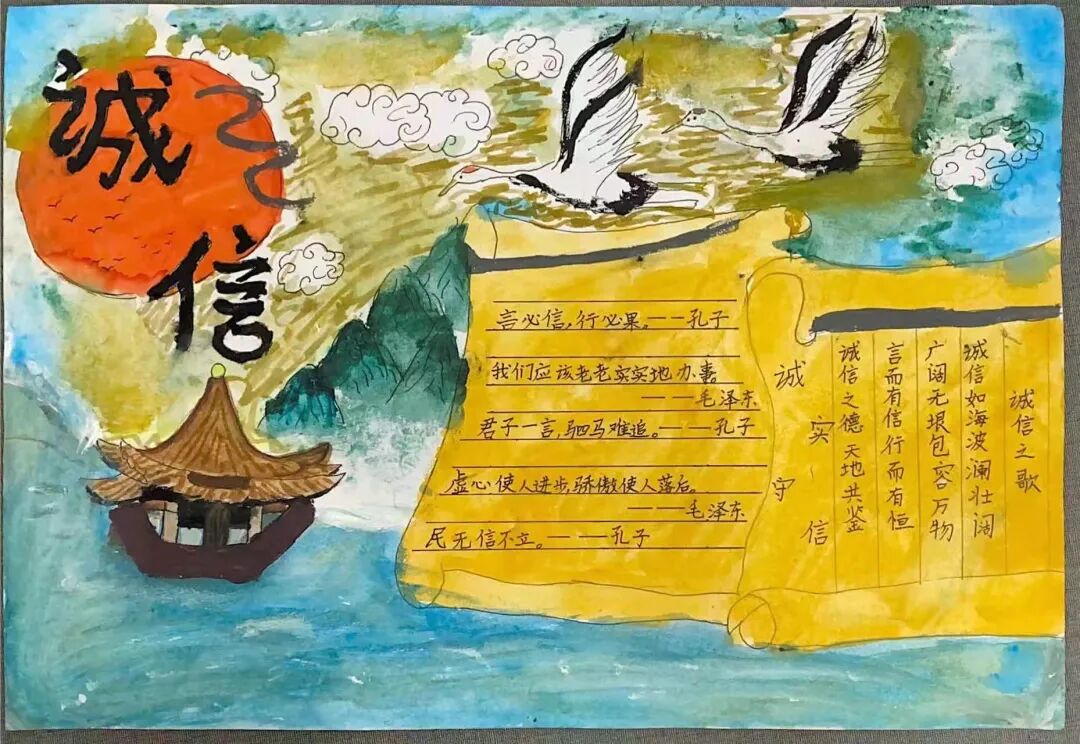 诚
信
言必信,行必果。——孔子
我们应该老老实实地办事。
———毛泽东
君子一言,驷马难追。——孔子
虚心使人进步,骄傲使人落后。
———毛泽东
民无信不立。———孔子
诚信之歌
诚信如海波澜壮阔
广阔无垠包容万物
言而有信行而有恒
诚信之德天地共鉴
诚实~守信